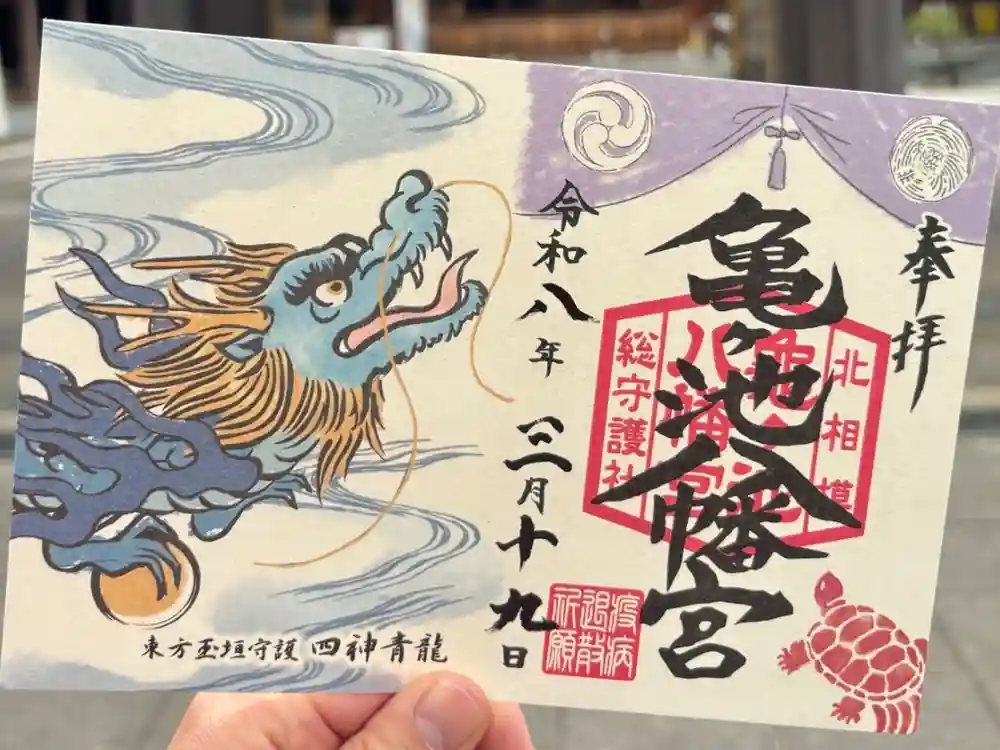 奉拝
亀ヶ池八幡宮
北相模
亀ヶ池
八幡宮
総守護社
令和八年三月十九日
疫病
退散
祈願
東方玉垣守護 四神青龍